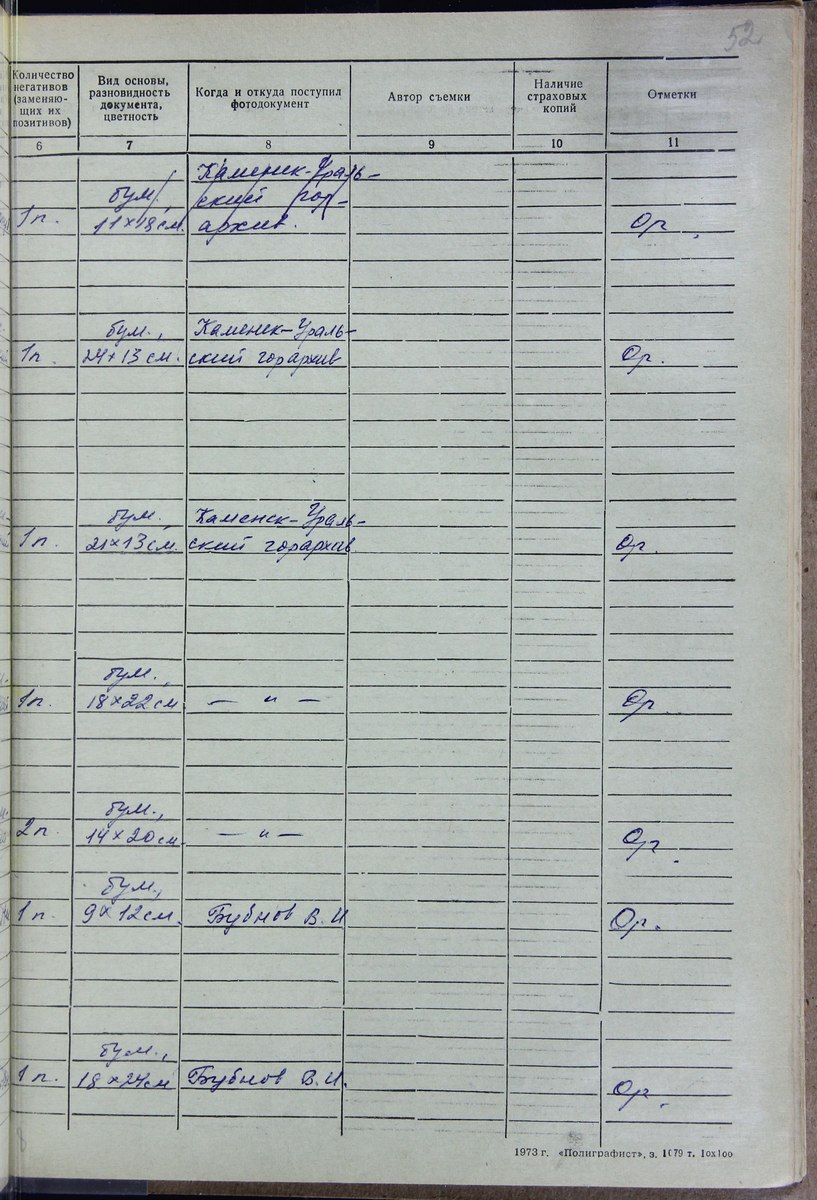 52
Количество негативов (заменяющих их позитивов)
Вид основы, разновидность документа, цветность
Когда и откуда поступил фотодокумент
Автор съемки
Наличие страховых копий
Отметки
6 7 8 9 10 11
Каменск-Ураль-
бум., ский гор-
1п. 11×18 см. архив. Ор.
бум., Каменск-Ураль-
1п. 24×13 см. ский горархив Ор.
бум., Каменск-Ураль-
1п. 21×13 см. ский горархив Ор.
бум.,
1п. 18×22 см — „ — Ор.
бум.,
2п. 14×20 см. — „ — Ор.
бум.,
1п. 9×12 см. Бубнов В.И Ор.
бум.,
1п. 18×24 см Бубнов В.И. Ор.
1973 г. «Полиграфист», з. 1079 т. 10х100